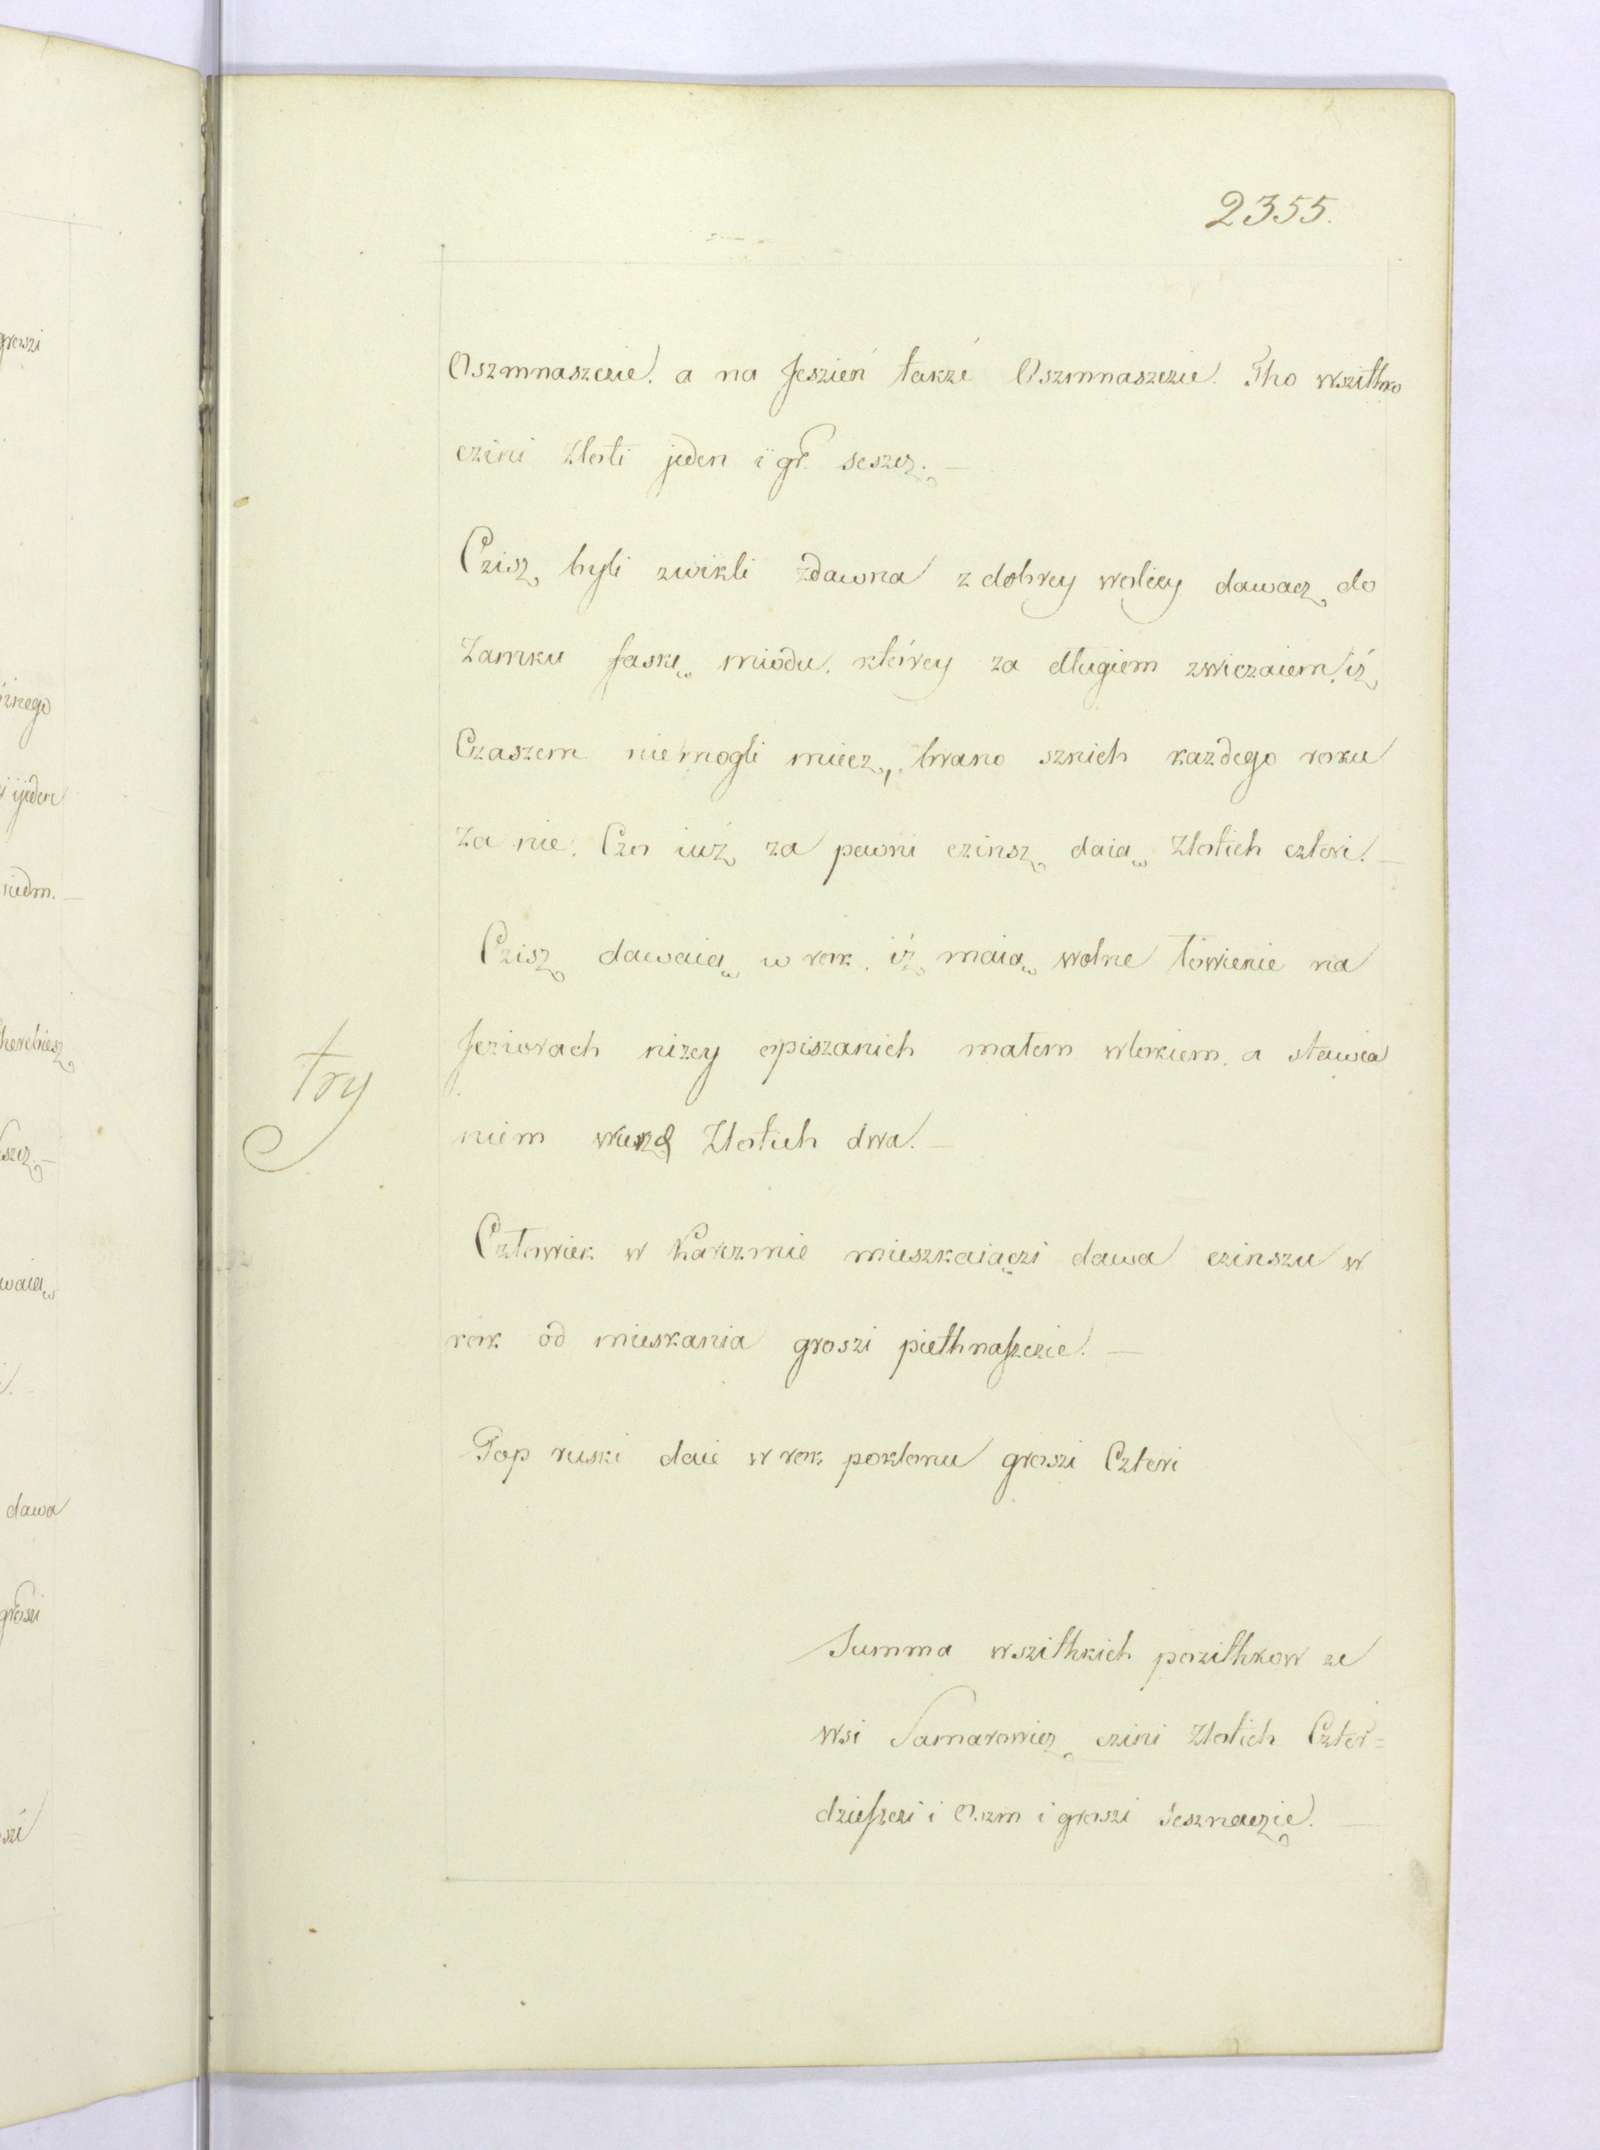 2355.
Oszmnaszczie. a na Jeszień także Oszmnaszczie. Tho wszithko
czini Złoti jeden i gr. seszcz. —
Czisz byli zwikli zdawna z dobrey woliey dawacz do
Zamku faskę miódu. którey za długiem zwiczaiem, iż
Czaszem niemogli miecz, brano sznich każdego roku
Za nie. Czo iuż za pewni czinsz daią Złotich cztori. —
Czisz dawaią w rok. iż maią wolne łowienie na
Jeziorach niżey opiszanich małem włokiem. a stawia
niem Złotich dwa. —
try
Człowiek w Karczmie mieszkaiączi dawa czinszu w
rok od mieskania groszi piethnaszczie. —
Pop ruski daie w rok pokłonu groszi Cztori
Summa wszithkich pozithkow ze
Wsi czini Złotich Czter=
dzieszczi i Oszm i groszi sesznaczie. —
groszi
ijeden
siedm. —
waią
dawa
groszi